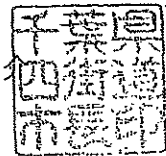 千葉県
四街道
市 印